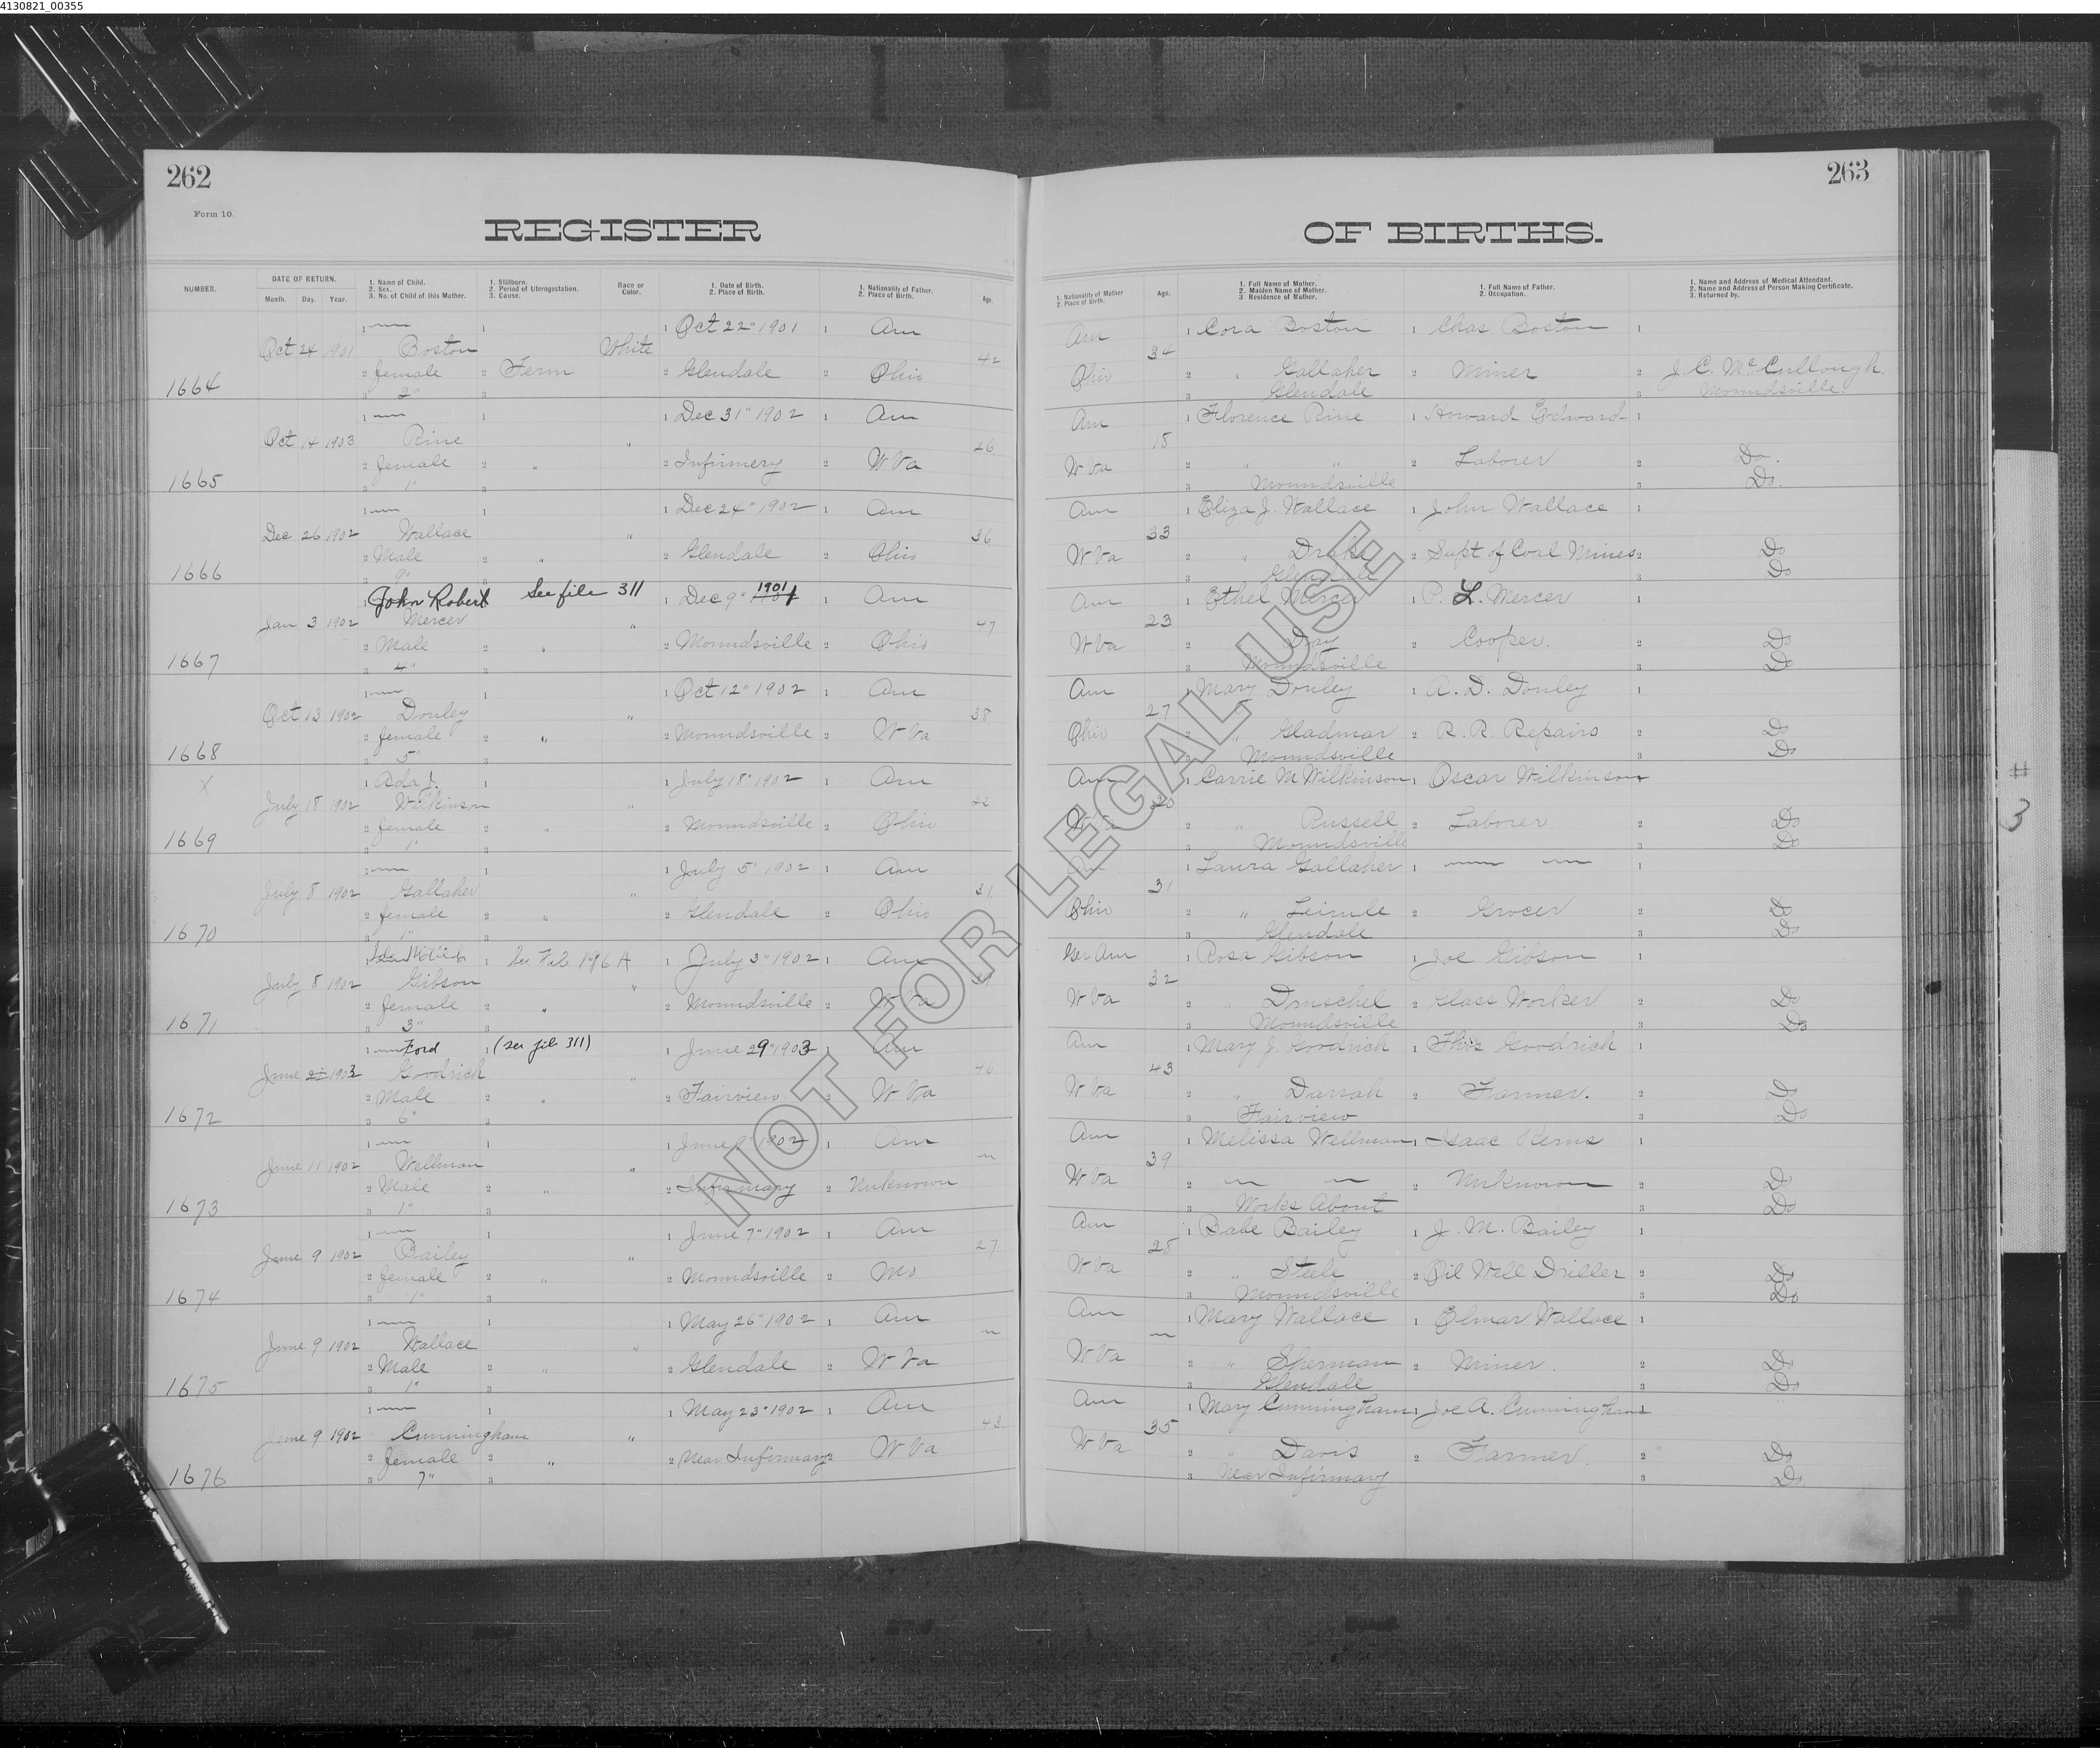 4130821_00355
262
Form 10.
REGISTER
NUMBER.
DATE OF RETURN.
Month. Day. Year.
1. Name of Child.
2. Sex.
3. No. of Child of this Mother.
1. Stillborn.
2. Period of Uterogestation.
3. Cause.
Race or Color.
1. Date of Birth.
2. Place of Birth.
1. Nationality of Father.
2. Place of Birth.
Age.
1 Oct 22" 1901 1 Am
Oct 24 1901 Boston White 42
1664 2 female 2 Term 2 Glendale 2 Ohio
3 2" 3
1 1 1 Dec 31" 1902 1 Am
Oct 14 1903 Rine " 26
1665 2 female 2 " 2 Infirmery 2 W Va
3 1" 3
1 1 1 Dec 24" 1902 1 Am
Dec 26 1902 Wallace " 36
1666 2 Male 2 " 2 Glendale 2 Ohio
3 9" 3
1 John Robert See file 311 1 Dec 9" 1901 1 Am
Jan 3 1902 Mercer " 47
1667 2 Male 2 " 2 Moundsville 2 Ohio
3 4" 3
1 1 1 Oct 12" 1902 1 Am
Oct 13 1902 Donley " 38
1668 2 female 2 " 2 Moundsville 2 W Va
3 5" 3
X 1 Ada 1 1 July 18" 1902 1 Am
July 18 1902 Wilkinson " 22
1669 2 female 2 " 2 Moundsville 2 Ohio
3 1" 3
1 1 1 July 5" 1902 1 Am
July 8 1902 Gallaher " 31
1670 2 female 2 " 2 Glendale 2 Ohio
3 1" 3
1 1 See File 196 A 1 July 3" 1902 1 Am
July 8 1902 Gibson "
1671 2 female 2 " 2 Moundsville 2 W Va
3 3" 3
1 Ford 1 (see file 311) 1 June 29" 1903 1 Am
June 1903 Goodrich " 46
1672 2 Male 2 " 2 Fairview 2 W Va
3 6" 3
1 1 1 June 9" 1902 1 Am
June 11 1902 Wellman "
1673 2 Male 2 " 2 Infirmary 2 Unknown
3 1" 3
1 1 1 June 7" 1902 1 Am
June 9 1902 Bailey " 27
1674 2 female 2 " 2 Moundsville 2 Mo
3 1" 3
1 1 1 May 26" 1902 1 Am
June 9 1902 Wallace "
1675 2 Male 2 " 2 Glendale 2 W Va
3 1" 3
1 1 1 May 23" 1902 1 Am
June 9 1902 Cunningham " 43
1676 2 female 2 " 2 Near Infirmary 2 W Va
3 7" 3
263
OF BIRTHS.
1. Nationality of Mother
2. Place of Birth.
Age.
1. Full Name of Mother.
2. Maiden Name of Mother.
3 Residence of Mother.
1. Full Name of Father.
2. Occupation.
1. Name and Address of Medical Attendant.
2. Name and Address of Person Making Certificate.
3. Returned by.
Am 1 Cora Boston 1 Chas Boston 1
34
Ohio 2 " Gallaher 2 Miner 2 J. C. McCullough.
3 Glendale 3 Moundsville.
Am 1 Florence Rine 1 Howard Edward 1
15
W Va 2 " " 2 Laborer 2 Do.
3 Moundsville 3 Do.
Am 1 Eliza J. Wallace 1 John Wallace 1
33
W Va 2 " Drake 2 Supt of Coal Mines 2 Do
3 Glendale 3 Do
Am 1 Ethel Mercer 1 P. L. Mercer 1
23
W Va 2 2 Cooper. 2 Do
3 Moundsville 3 Do
Am 1 Mary Donley 1 A. D. Donley 1
27
Ohio 2 " Gladmar 2 R. R. Repairs 2 Do
3 Moundsville 3 Do
Am 1 Carrie M Wilkinson 1 Oscar Wilkinson
20
W Va 2 " Russell 2 Laborer 2 Do
3 Moundsville 3 Do
Am 1 Laura Gallaher 1 1
31
Ohio 2 " 2 Grocer 2 Do
3 Glendale 3 Do
Ger Am 1 Rosa Gibson 1 Joe Gibson 1
32
W Va 2 " Druschel 2 Glass Worker 2 Do
3 Moundsville 3 Do
Am 1 Mary J. Goodrich 1 Thos Goodrich 1
43
W Va 2 " Darrah 2 Farmer. 2 Do
3 Fairview 3 Do
Am 1 Melissa Wellman 1 Isaac Kerns 1
39
W Va 2 2 Unknown 2 Do
3 Works About 3 Do
Am 1 Babe Bailey 1 J. M. Bailey 1
25
W Va 2 " Steele 2 Oil Well Driller 2 Do
3 Moundsville 3 Do
Am 1 Mary Wallace 1 Elmar Wallace 1
W Va 2 " Sherman 2 Miner. 2 Do
3 Glendale 3 Do
Am 1 Mary Cunningham 1 Joe A. Cunningham
35
W Va 2 " Davis 2 Farmer. 2 Do
3 Near Infirmary 3 Do
# 3
NOT FOR LEGAL USE